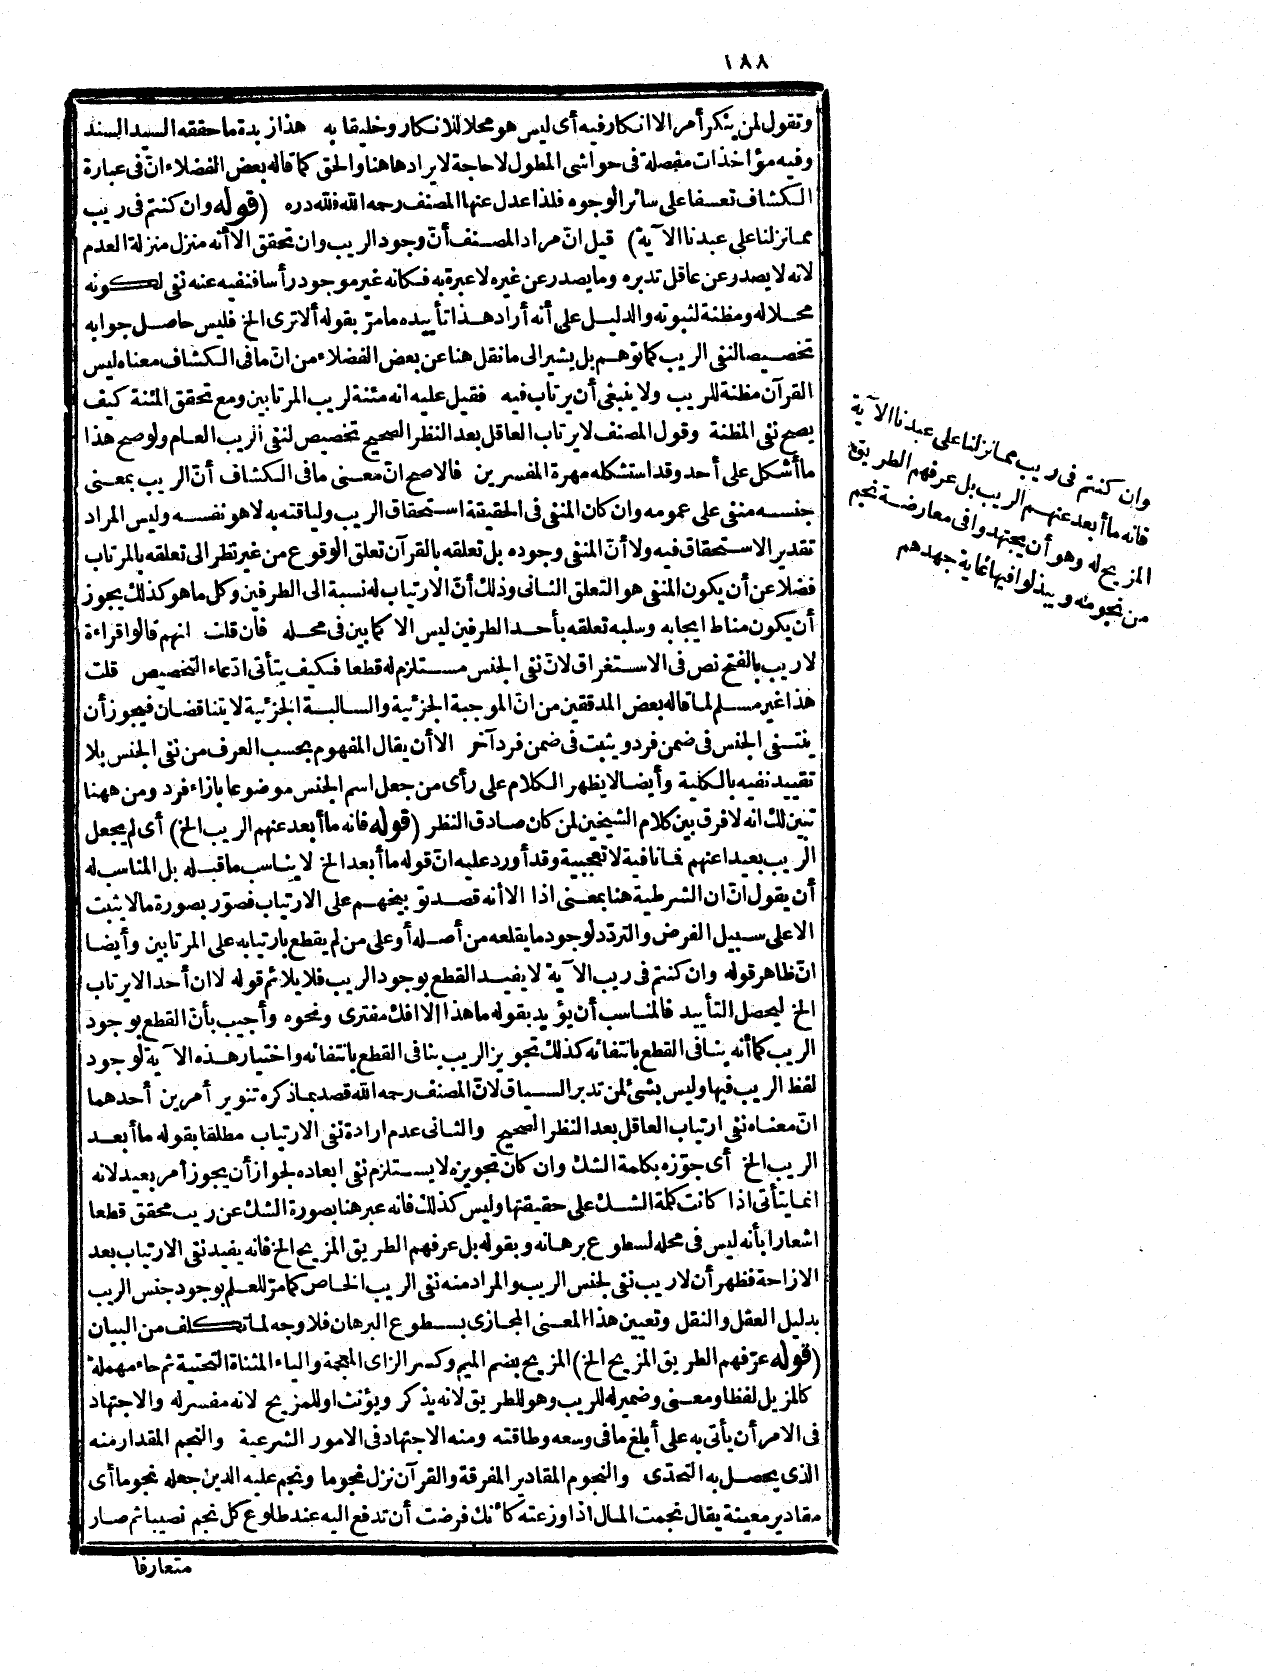 ١٨٨
وتقول لمن ينكر أمرا لا انكار فيه أى ليس هو محلا للانكار وخليقا به هذا زبدة ما حققه السيد السند
وفيه مؤاخذات مفصلة فى حواشى المطول لا حاجة لايرادها هنا والحق كما قاله بعض الفضلاء انّ فى عبارة
الكشاف تعسفا على سائر الوجوه فلذا عدل عنها المصنف رحمه الله فلله دره (قوله وان كنتم فى ريب
مما نزلنا على عبدنا الآية) قيل انّ مراد المصنف أنّ وجود الريب وان تحقق الا أنه منزل منزلة العدم
لانه لا يصدر عن عاقل تدبره وما يصدر عن غيره لا عبرة به فكانه غير موجود رأسا فنفيه عنه نفى لكونه
محلا له ومظنة لثبوته والدليل على أنه أراد هذا تأييده ما مرّ بقوله ألا ترى الخ فليس حاصل جوابه
تخصيصا لنفى الريب كما توهم بل يشير الى ما نقل هنا عن بعض الفضلاء من انّ ما فى الكشاف معناه ليس
القرآن مظنة للريب ولا ينبغى أن يرتاب فيه فقيل عليه انه مئنة لريب المرتابين ومع تحقق المئنة كيف
يصح نفى المظنة وقول المصنف لا يرتاب العاقل بعد النظر الصحيح تخصيص لنفى الريب العام ولو صح هذا
ما أشكل على أحد وقد استشكله مهرة المفسرين فالاصح انّ معنى ما فى الكشاف أنّ الريب بمعنى
جنسه منفى على عمومه وان كان المنفى فى الحقيقة استحقاق الريب ولياقته به لا هو نفسه وليس المراد
تقدير الاستحقاق فيه ولا أنّ المنفى وجوده بل تعلقه بالقرآن تعلق الوقوع من غير نظر الى تعلقه بالمرتاب
فضلا عن أن يكون المنفى هو التعلق الثانى وذلك أنّ الارتياب له نسبة الى الطرفين وكل ما هو كذلك يجوز
أن يكون مناط ايجابه وسلبه تعلقه بأحد الطرفين ليس الا كما بين فى محله فان قلت انهم قالوا قراءة
لا ريب بالفتح نص فى الاستغراق لانّ نفى الجنس مستلزم له قطعا فكيف يتأتى ادّعاء التخصيص قلت
هذا غير مسلم لما قاله بعض المدققين من انّ الموجبة الجزئية والسالبة الجزئية لا يتناقضان فيجوز أن
ينتفى الجنس فى ضمن فرد ويثبت فى ضمن فرد آخر الا أن يقال المفهوم بحسب العرف من نفى الجنس بلا
تقييد نفيه بالكلية وأيضا لا يظهر الكلام على رأى من جعل اسم الجنس موضوعا بازاء فرد ومن ههنا
تبين لك انه لا فرق بين كلام الشيخين لمن كان صادق النظر (قوله فانه ما أبعد عنهم الريب الخ) أى لم يجعل
الريب بعيدا عنهم فما نافية لا تعجبية وقد أورد عليه انّ قوله ما أبعد الخ لا يناسب ما قبله بل المناسب له
أن يقول انّ ان الشرطية هنا بمعنى اذا الا أنه قصد توبيخهم على الارتياب فصوّر بصورة ما لا يثبت
الا على سبيل الفرض والتردّد لوجود ما يقلعه من أصله أو على من لم يقطع بارتيابه على المرتابين وأيضا
انّ ظاهر قوله وان كنتم فى ريب الآية لا يفيد القطع بوجود الريب فلا يلائم قوله لا ان أحدا لا يرتاب
الخ ليحصل التأييد فالمناسب أن يؤيد بقوله ما هذا الا افك مفترى ونحوه وأجيب بأنّ القطع بوجود
الريب كما أنه ينافى القطع بانتفائه كذلك تجويز الريب ينافى القطع بانتفائه واختيار هذه الآية لوجود
لفظ الريب فيها وليس بشئ لمن تدبر السياق لانّ المصنف رحمه الله قصد بما ذكره تنوير أمرين أحدهما
انّ معناه نفى ارتياب العاقل بعد النظر الصحيح والثانى عدم ارادة نفى الارتياب مطلقا بقوله ما أبعد
الريب الخ أى جوّزه بكلمة الشك وان كان تجويزه لا يستلزم نفى ابعاده لجواز أن يجوز أمر بعيد لانه
انما يتأتى اذا كانت كلمة الشك على حقيقتها وليس كذلك فانه عبر هنا بصورة الشك عن ريب محقق قطعا
اشعارا بأنه ليس فى محله لسطوع برهانه وبقوله بل عرفهم الطريق المزيح الخ فانه يفيد نفى الارتياب بعد
الازاحة فظهر أن لا ريب نفى لجنس الريب والمراد منه نفى الريب الخاص كما مرّ للعلم بوجود جنس الريب
بدليل العقل والنقل وتعيين هذا المعنى المجازى بسطوع البرهان فلا وجه لما تكلف من البيان
(قوله عرّفهم الطريق المزيح الخ) المزيح بضم الميم وكسر الزاى المعجمة والياء المثناة التحتية ثم حاء مهملة
كالمزيل لفظا ومعنى وضمير له للريب وهو للطريق لانه يذكر ويؤنث او للمزيح لانه مفسر له والاجتهاد
فى الامر أن يأتى به على أبلغ ما فى وسعه وطاقته ومنه الاجتهاد فى الامور الشرعية والنجم المقدار منه
الذى يحصل به التحدّى والنجوم المقادير المفرقة والقرآن نزل نجوما ونجم عليه الدين جعله نجوما أى
مقادير معينة يقال نجمت المال اذا وزعته كأنك فرضت أن تدفع اليه عند طلوع كل نجم نصيبا ثم صار
متعارفا
وان كنتم فى ريب مما نزلنا على عبدنا الآية
فانه ما أبعد عنهم الريب بل عرفهم الطريق
المزيح له وهو أن يجتهدوا فى معارضة نجم
من نجومه ويبذلوا فيها غاية جهدهم